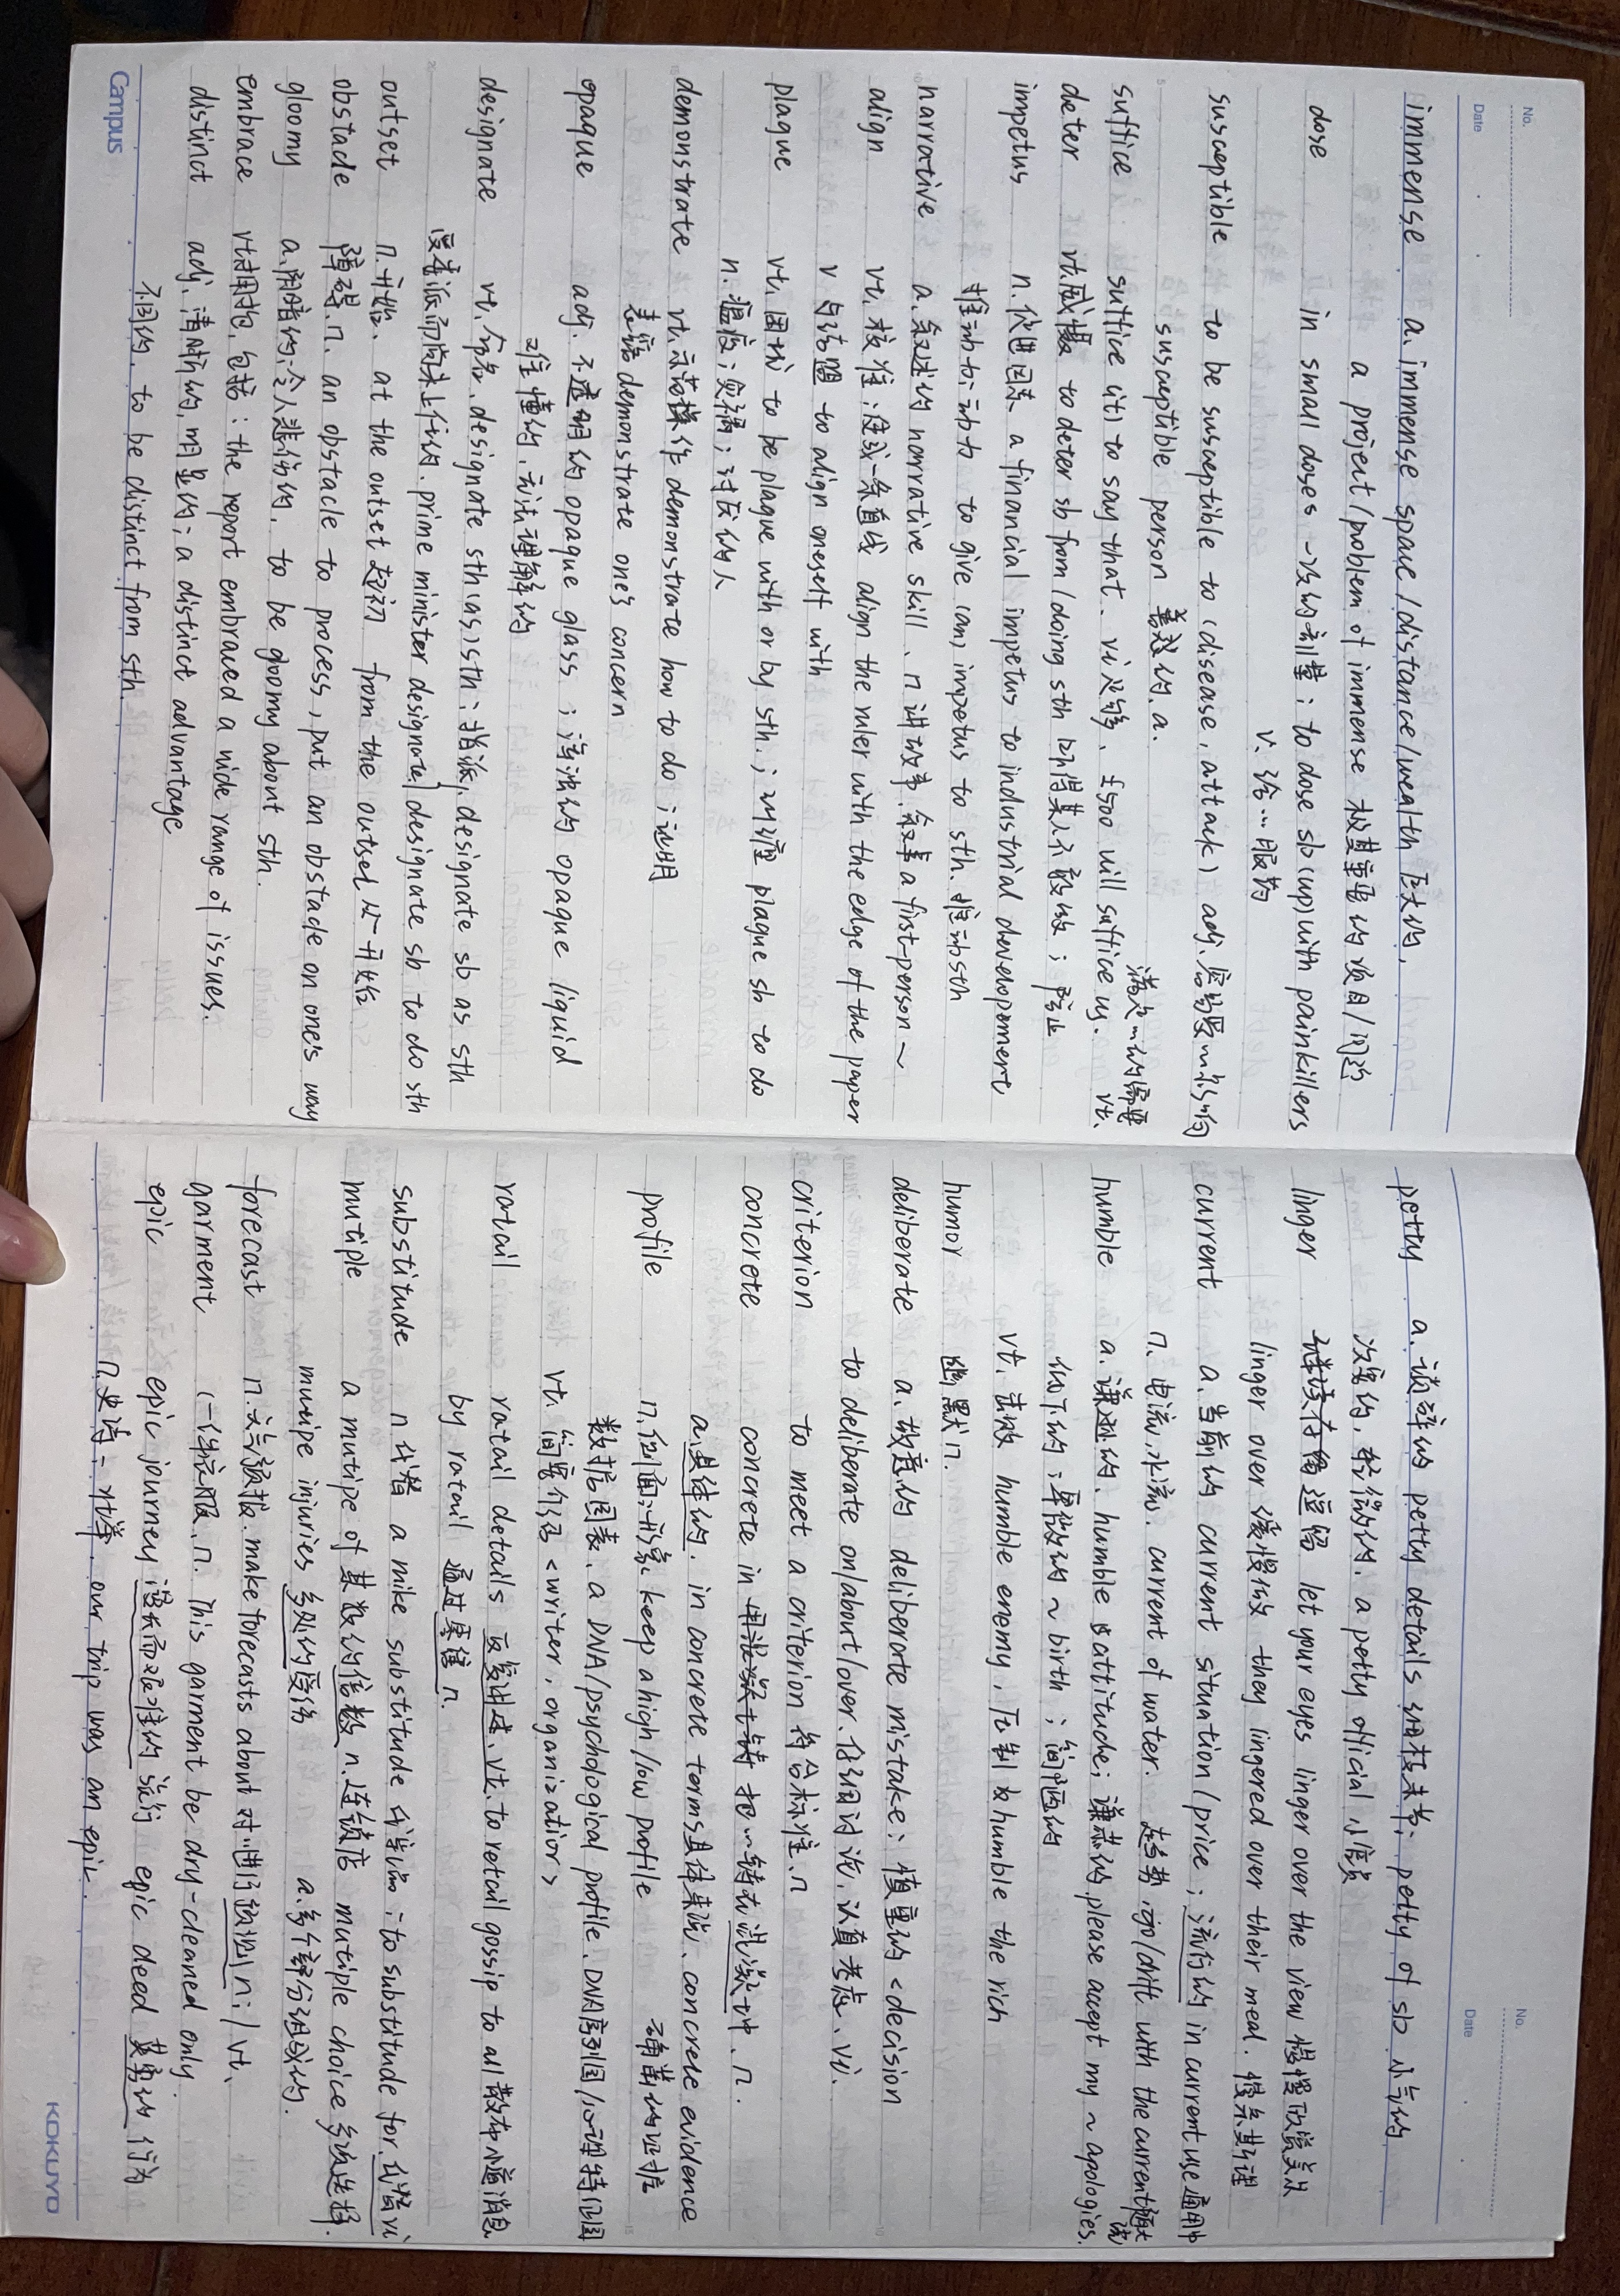 No.
Date
immense a. immense space/distance/wealth 巨大的.
a project/problem of immense 极其重要的项目/问题
dose in small doses 一次的剂量: to dose sb (up) with painkillers
v. 给…服药
susceptible to be susceptible to (disease, attack) adj. 容易受…影响
susceptible person 善感的 a.
suffice suffice (it) to say that. vi 足够、£500 will suffice us. 满足…的需要 vt.
deter vt. 威慑 to deter sb from/doing sth 吓得某人不敢做; 阻止
impetus n. 促进因素 a financial impetus to industrial development
推动力; 动力 to give (an) impetus to sth. 推动sth
narrative a. 叙述的 narrative skill、n 讲故事.叙事 a first-person ~
align vt. 校准; 使成一条直线 align the ruler with the edge of the paper
v 与结盟 to align oneself with
plague vt. 困扰 to be plague with or by sth.; 纠缠 plague sb to do
n. 瘟疫; 灾祸; 讨厌的人
demonstrate vt. 示范操作 demonstrate how to do; 证明
表露 demonstrate one's concern
opaque adj. 不透明的 opaque glass; 浑浊的 opaque liquid
难懂的.无法理解的
designate vt. 命名. designate sth (as) sth; 指派, designate sb as sth
受委派而尚未上任的. prime minister designate/designate sb to do sth
outset n. 开始. at the outset 起初 from the outset 从一开始
obstacle 障碍. n. an obstacle to process, put an obstacle on one's way
gloomy a. 阴暗的; 令人悲伤的. to be gloomy about sth.
embrace vt. 拥抱, 包括: the report embraced a wide range of issues.
distinct adj. 清晰的, 明显的; a distinct advantage
不同的. to be distinct from sth.
Campus
No.
Date
petty a. 琐碎的 petty details 细枝末节; petty of sb 小气的
次要的, 轻微的. a petty official 小官员
linger 继续存留 逗留 let your eyes linger over the view 慢慢欣赏美景
linger over 缓慢做 they lingered over their meal. 慢条斯理
current a. 当前的 current situation/price; 流行的 in current use 通用中
n. 电流, 水流. current of water. 趋势. go/drift with the current 随大流
humble a. 谦逊的. humble attitude; 谦恭的 please accept my ~ apologies.
低下的; 卑微的 ~ birth; 简陋的
vt. 击败 humble enemy, humble the rich
humor 幽默 n.
deliberate a. 故意的 deliberate mistake; 慎重的 <decision
to deliberate on/about/over. 仔细讨论, 认真考虑、vi.
criterion to meet a criterion 符合标准. n
concrete concrete in 把…铸在混凝土中. n.
a. 具体的. in concrete terms 具体来说. concrete evidence
profile n. 侧面; 形象. keep a high/low profile 确凿的证据
数据图表. a DNA/psychological profile. DNA序列图/心理特征图
vt. 简要介绍 <writer, organization>
ratail ratail details 反复讲述. vt. to retail gossip to all 散布小道消息
by ratail 通过零售 n.
substitude n 代替 a mike substitude 代替品: to substitude for 代替 vi
mutiple a mutipe of 某数的倍数 n. 连锁店 mutiple choice 多项选择.
mutipe injuries 多处的受伤 a. 多个部分组成的.
forecast n. 天气预报. make forecasts about 对…进行预测 n: / vt.
garment (一件)衣服. n. This garment be dry-cleaned only.
epic epic journey 漫长而艰难的旅行 epic deed 英勇的行为
n. 史诗: 壮举. our trip was an epic.
KOKUYO